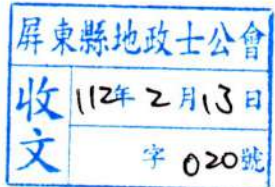 屏東縣地政士公會
收文
112年2月13日
字020號